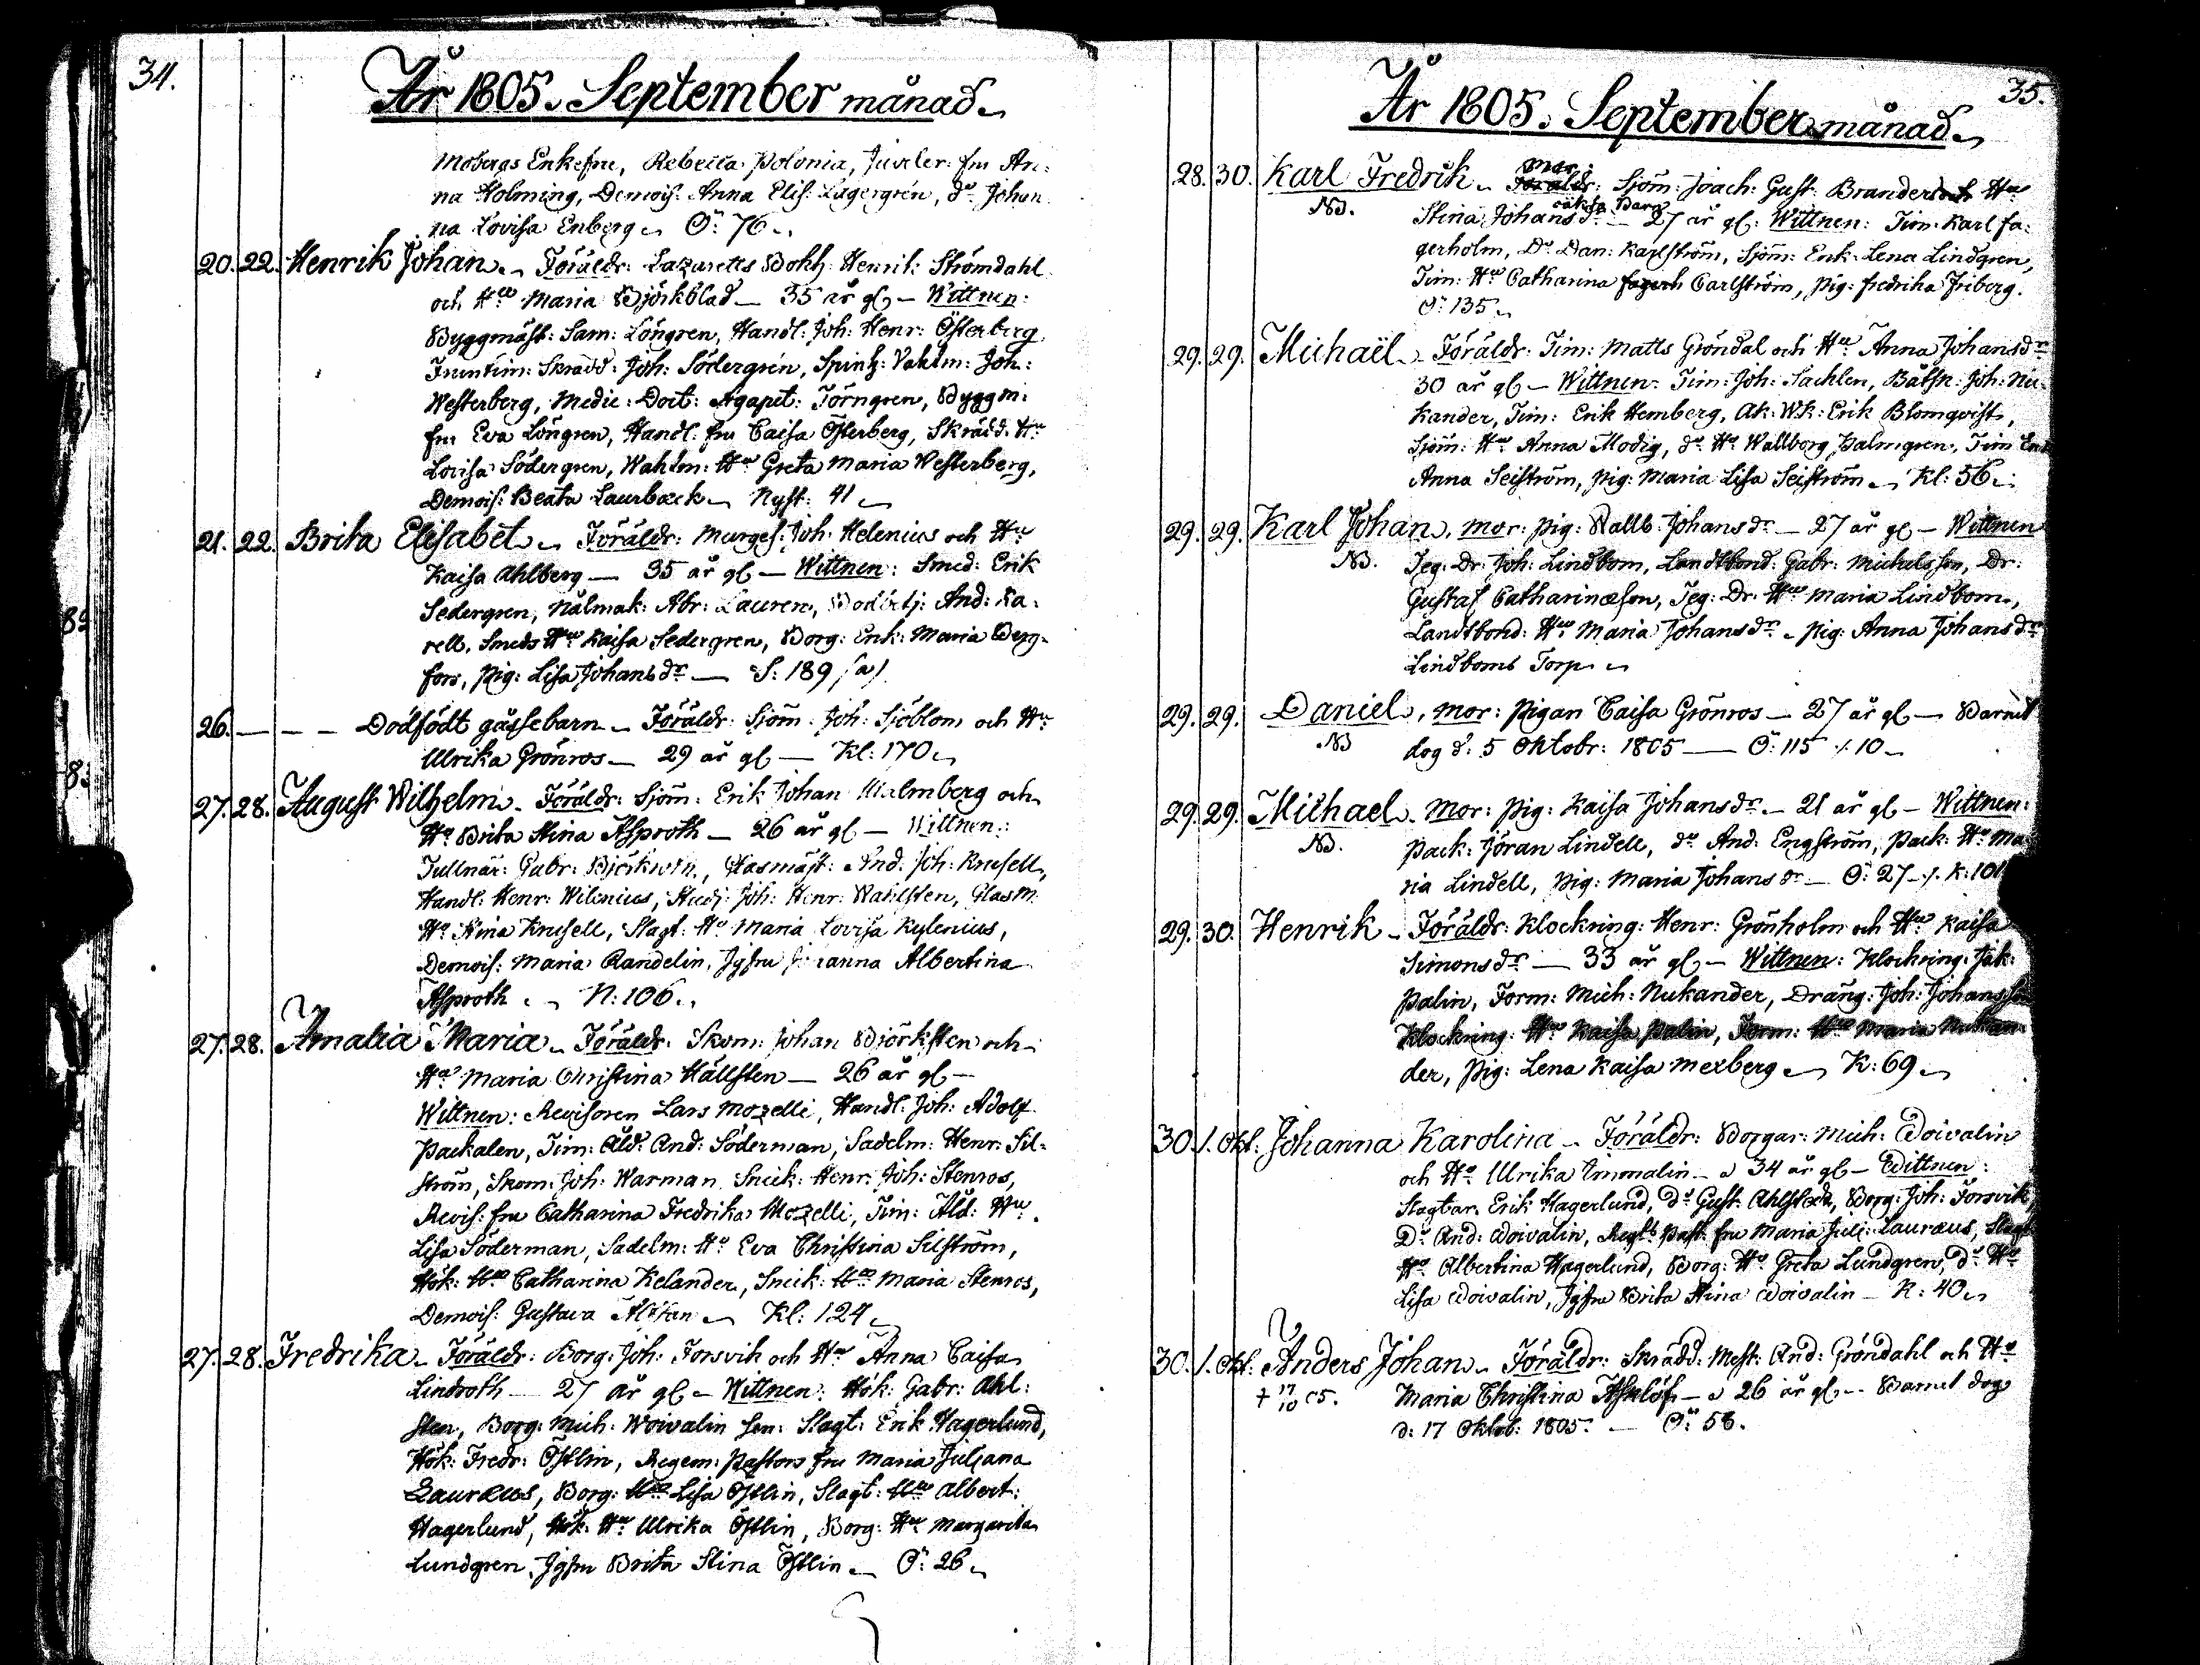 34.
År 1805. September månad.
Mobergs Enkefru, Rebecca Polonia, Juveler: fru An:
na Holming, Demois: Anna Elis: Lagergrén, do Johan
na Lovisa Enberg. Ö: 76.
20. 22. Henrik Johan. Föräldr: Lazaretts Bokh: Henrik Strömdahl
och Hu Maria Björkblad — 35 år gl — Wittnen:
Byggmäst: Sam: Löngren, Handl: Joh: Henr: Österberg
Fruntim: Skradd: Joh: Södergrén, Sprutz: Vaktm: Joh:
Westerberg, Medic: Doct: Agapet: Törngren, Byggm:
fru Eva Löngren, Handl: fru Caisa Österberg, Skrädd: Hu
Lovisa Södergren, Wahtm: Hu Greta Maria Westerberg,
Demois: Beata Laurbæck. Nyst: 41
21. 22. Brita Elisabet. Föräldr: Murges: Joh: Helenius och Hu
Kaisa Ahlberg — 35 år gl — Wittnen: Smed: Erik
Sedergren, Nålmak: Abr: Lauren, And: Ka:
rell, Smeds Hu Kaisa Sedergren, Borg: Enk: Maria Berg:
fors, Pig: Lisa Johansdr — S: 189 (a)
26. — — — Dödfödt gåssebarn. Föräldr: Sjöm: Joh: Sjöblom och Hu
Ulrika Grönros — 29 år gl — Kl: 170
27. 28. August Wilhelm. Föräldr: Sjöm: Erik Johan Malmberg och
Hu Brita Stina Asproth — 26 år gl — Wittnen:
Tullnär: Gabr: Glasmäst: And: Joh: Krusell,
Handl: Henr: Wilenius, Stud: Joh: Henr: Wahlsten, Glasm:
Hu Stina Krusell, Slagt: Hu Maria Lovisa Kylenius,
Demois: Maria Randelin, Jgfru Albertina
Asproth. N: 106.
27. 28. Amalia Maria. Föräldr: Skom: Johan Björksten och
Hu Maria Christina Hällsten — 26 år gl —
Wittnen: Revisoren Lars Mozelli, Handl: Joh: Adolf
Packalen, Tim: Åld: And: Söderman, Sadelm: Henr: Sil:
ström, Skom: Joh: Warman Snick: Henr: Joh: Stenros,
Revis: fru Catharina Fredrika Mozelli, Tim: Åld: Hu
Lisa Söderman, Sadelm: Hu Eva Christina Silström,
Hök: Hu Catharina Kelander, Snick: Hu Maria Stenros,
Demois: Gustava Kl: 124
27. 28. Fredrika. Föräldr: Borg: Joh: Forsvik och Hu Anna Caisa
Lindroth — 27 år gl — Wittnen: Hök: Gabr: Ahl:
sten, Borg: Mich: Woivalin Sen: Slagt: Erik Hagerlund,
Hök: Fredr: Östlin, Regem: Pastors fru Maria Juliana
Lauræus, Borg: Hu Lisa Östlin, Slagt: Hu Albert:
Hagerlund, Hök: Hu Ulrika Östlin, Borg: Hu Margareta
Lundgren, Jgfru Brita Stina Östlin. Ö: 26
35.
År 1805. September månad.
28. 30. Karl Fredrik. Mor: Föräldr: Sjöm: Joach: Gust: Branders och Hu
NB. Stina Johansdr 27 år gl: Wittnen: Tim: Karl Fa:
gerholm, Do Dan: Karlström, Sjöm: Enk: Lena Lindgren,
Tim: Hu Catharina Carlström, Pig: Fredrika Friberg.
Ö: 135
29. 29. Michaël. Föräldr: Tim: Matts Gröndal och Hu Anna Johansdr
30 år gl — Wittnen: Tim: Joh: Sachlen, Båtsn: Joh: Nu:
kander, Tim: Erik Hemberg, Ak: Wk: Erik Blomqvist,
Sjöm: Hu Anna Modig, do Hu Wallborg Palmgren, Tim Enk
Anna Seiström, Pig: Maria Lisa Seiström. Kl: 56
29. 29. Karl Johan. Mor: Pig: Wallb: Johansdr — 27 år gl — Wittnen
NB. Teg: Dr: Joh: Lindbom, Landtbond: Gabr: Michelsson, Dr:
Gustaf Catharinæson, Teg: Dr: Hu Maria Lindbom,
Landtbond: Hu Maria Johansdr. Pig: Anna Johansdr
Lindboms Torp.
29. 29. Daniel, Mor: Pigan Caisa Grönros — 27 år gl — Barnet
NB dog d: 5 Oktobr: 1805 — Ö: 115 /. 10
29. 29. Michael. Mor: Pig: Kaisa Johansdr. — 21 år gl — Wittnen:
NB. Pack: Jöran Lindell, do And: Engström, Pack: Hu Ma:
ria Lindell, Pig: Maria Johansdr — Ö: 27 /. K: 101
29. 30. Henrik. Föräldr: Klockring: Henr: Grönholm och Hu Kaisa
Simonsdr — 33 år gl — Wittnen: Klockring: Jak:
Palin, Form: Mich: Nukander, Dräng: Joh: Johansson
Klockring: Hu Kaisa Palin, Form: Hu Maria Nukan:
der, Pig: Lena Kaisa Mexberg. K: 69
30. 1. Okt: Johanna Karolina. Föräldr: Borgar: Mich: Woivalin
och Hu Ulrika Immonalin — 34 år gl — Wittnen:
Slagtar. Erik Hagerlund, do Gust: Ahlstedt, Borg: Joh: Forsvik,
Do And: Woivalin, Regts Past: fru Maria Juli: Lauræus, Slagt
Hu Albertina Hagerlund, Borg: Hu Greta Lundgren, do Hu
Lisa Woivalin, Jgfru Brita Stina Woivalin — K: 40
30. 1. Okt: Anders Johan. Föräldr: Skrädd: Mest: And: Gröndahl och Hu
+ 17/10 05. Maria Christina Asklöf — 26 år gl — Barnet dog
d: 17 Oktob: 1805. — Ö: 58.